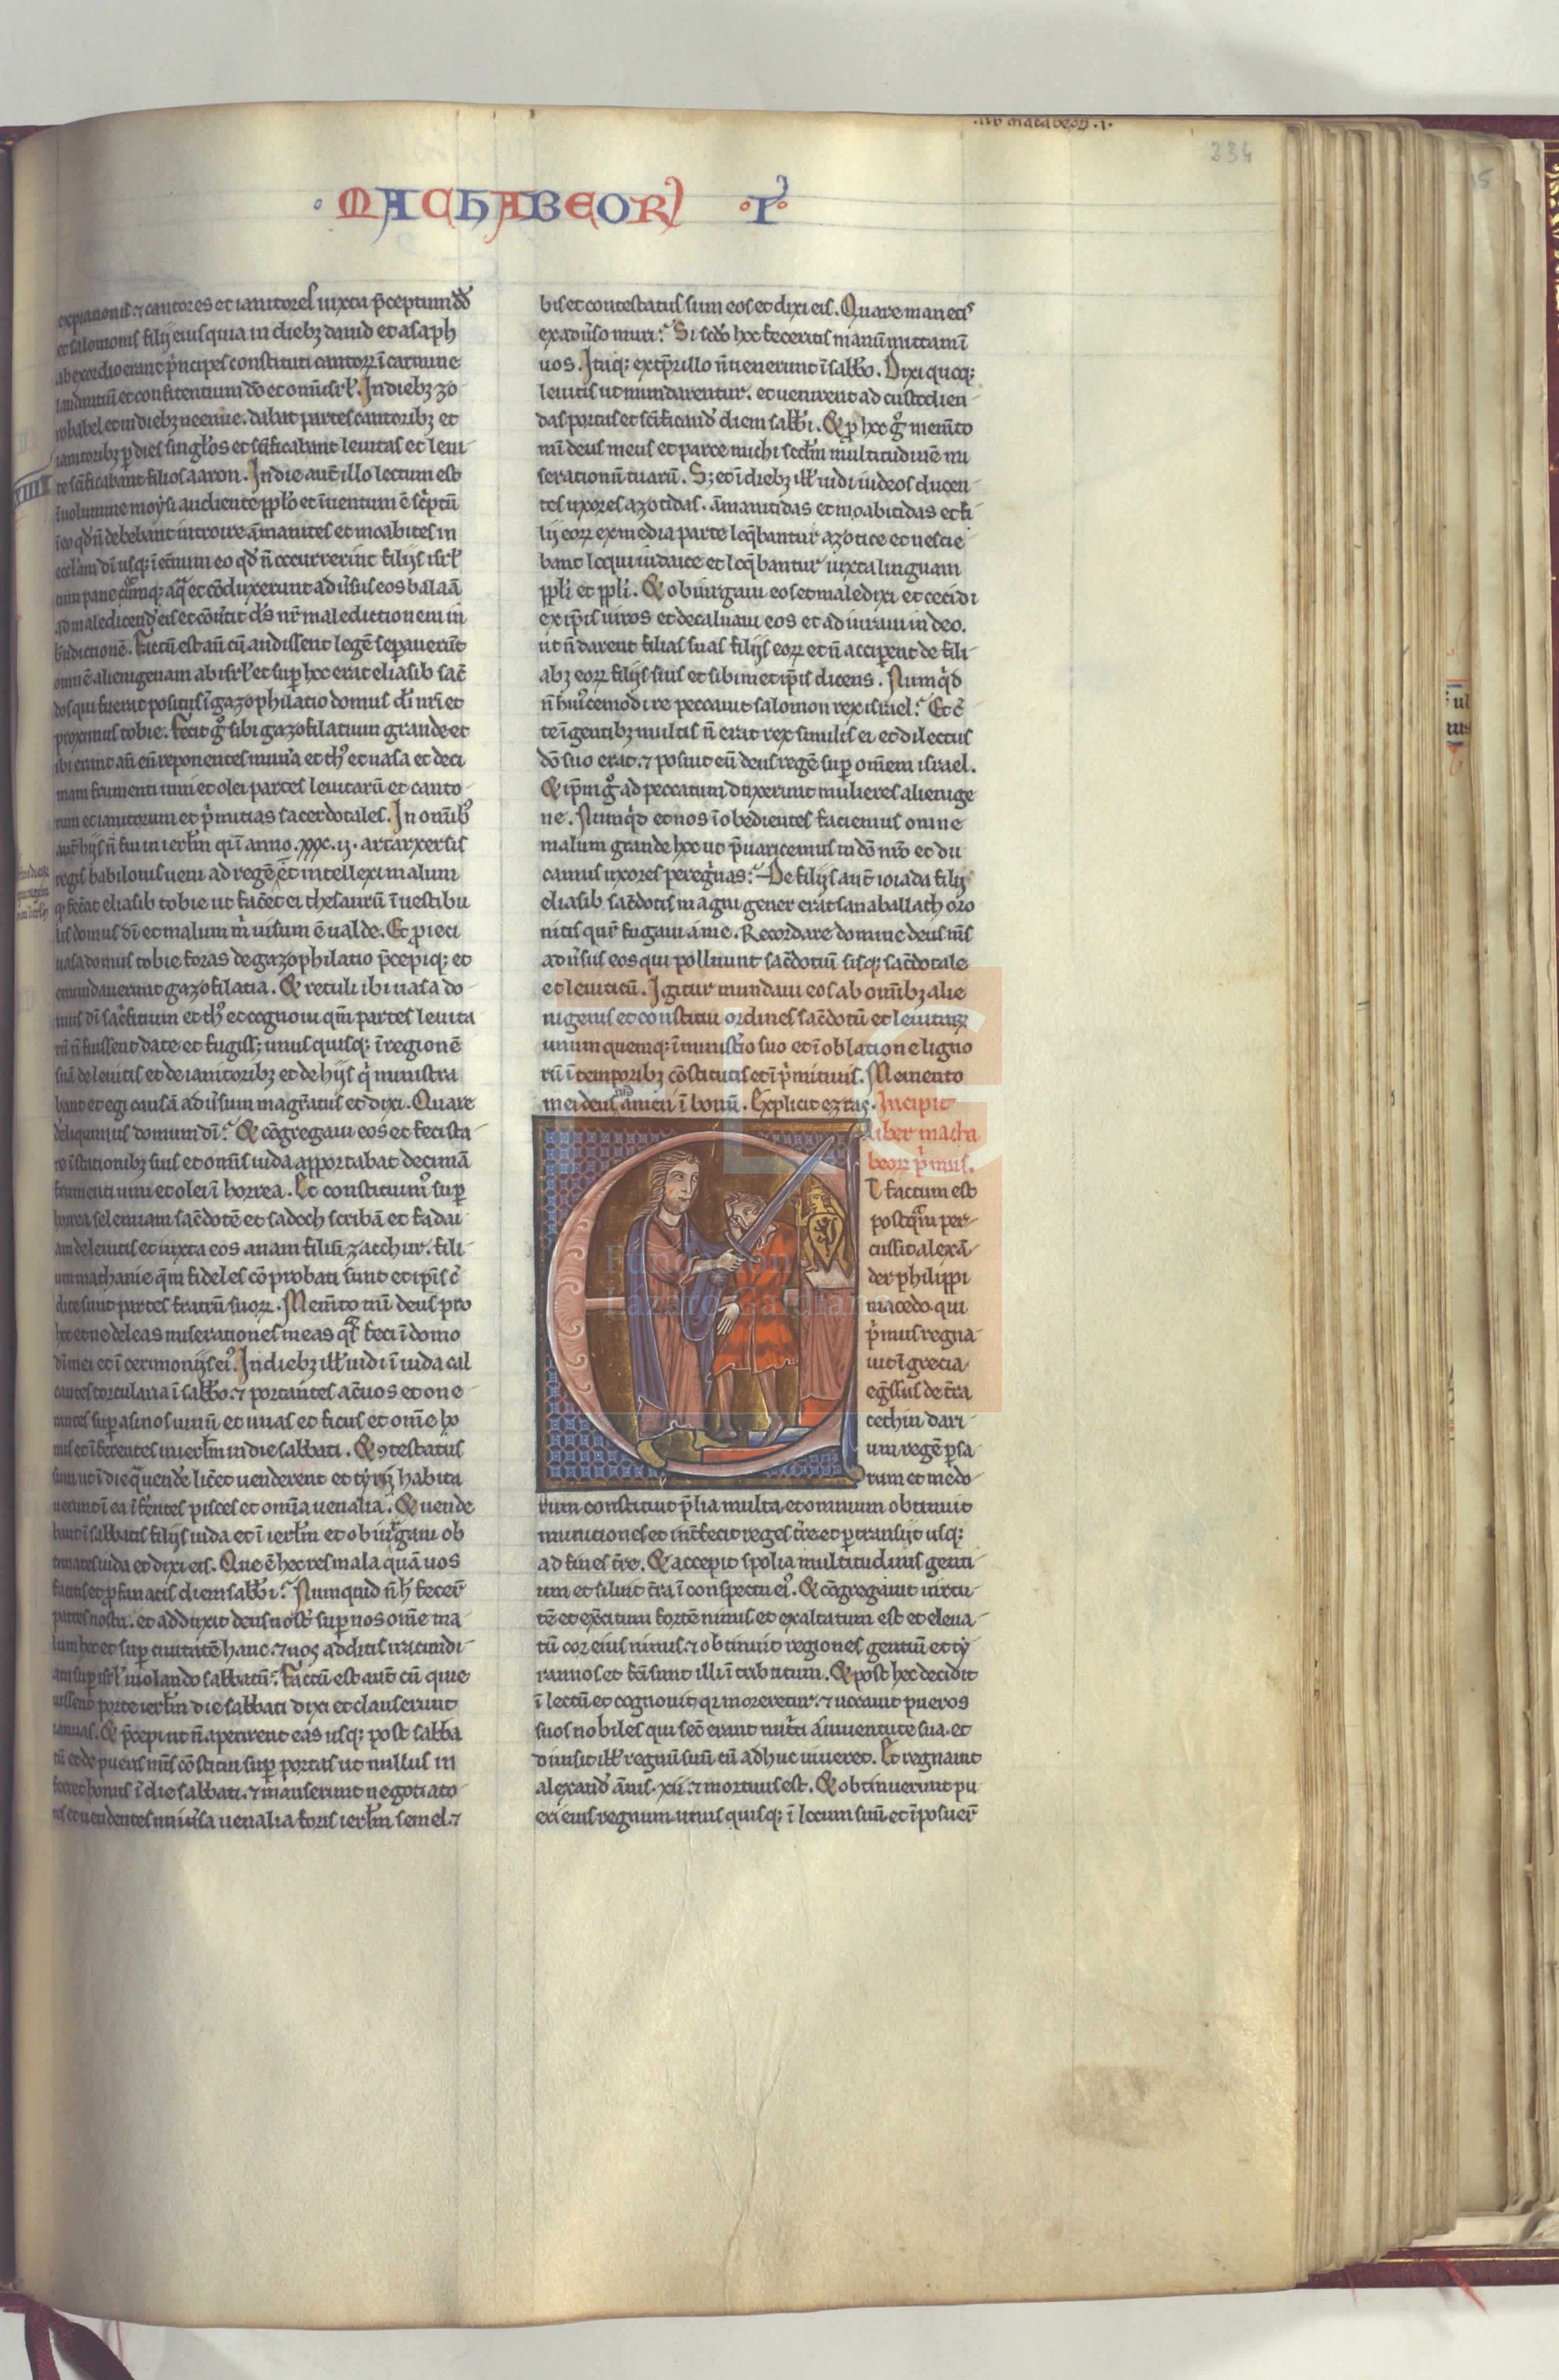 .lib' machabeoȝ. i.
334
MACHABEOR' .I.
expiationis. ⁊ cantores et ianitores iuxta p̄ceptum dd̄
et salomonis filij eius quia in diebȝ dauid et asaph
ab exordio erant p̄ncipes constituti cantorꝝ ī carmine
laudantiū et confitentium dō et omīs isrl̄. In diebȝ zo
robabel et in diebȝ neemie. dabāt partes cantoribȝ et
ianitoribȝ p̱ dies singl̄os et scīficabant leuitas et leui
te scīficabant filios aaron. In die aut̄ illo lectum est
XIII
ī uolumine moysi audiente ppl̄o et īuentum ē sc̄ptū
ī eo qd̄ n̄ debebant introire āmanites et moabites in
eccl̄am dī usq; ī et̄num eo qd̄ n̄ occurrerint filijs isrl̄
cum pane et aq̄ et cōduxerunt aduˀsus eos balaā
ad maledicend̄ eis et cōuˀtit dˀs nr̄ maledictionem in
bn̄dictionē. Factū est aū cū audissent legē sepauerūt
omnē alienigenam ab isrl̄ et sup̱ hoc erat eliasib sac̄
dos qui fuerat positus ī gazophilatio domus dī nrī et
proximus tobie. Fecit gͦ sibi gazofilatium grande et
ibi erant an̄ eū reponentes munˀa et thˀ et uasa et deci
mam frumenti uini et olei partes leuitarū et canto
rum et ianitorum et pˀmitias sacerdotales. In omībˀ
aut̄ hijs n̄ fui in ierl̄m qͥ ī anno. xxx. ij. artarxersis
regis babilonis ueni ad regē et intellexi malum
qͦ fec̄at eliasib tobie ut fac̄et ei thesaurū ī uestibu
lis domus dī et malum mͥ uisum ē ualde. Et proieci
uasa domus tobie foras de gazophilatio p̄cepiq; et
emundauerunt gazofilatia. Et retuli ibi uasa do
mus dī sac̄ficium et thˀ et cognoui qm̄ partes leuita
rū n̄ fuissent date et fugiss; unus quisq; ī regionē
suā de leuitis et de ianitoribȝ et de hijs qͥ ministra
bant et egi causā aduˀsum magr̄atus et dixi. Quare
deliquimus domum dī. Et cōgregaui eos et feci sta
re ī stationibȝ suis et omīs iuda apportabat decimā
frumenti uini et olei ī horrea. Et constituimˀ sup̱
horrea selemiam sac̄dotē et sadoch scribā et fadai
am de leuitis et iuxta eos anam filiū zacchur. fili
um mathanie qm̄ fideles cōprobati sunt et ip̄is c̄
dite sunt partes fratrū suorꝝ. Mem̄to mī deus pro
hoc et ne deleas miserationes meas qͣs feci ī domo
dī mei et ī cerimonijs eiˀ. In diebȝ ill̄ uidi ī iuda cal
cantes torcularia ī sabb̄o. ⁊ portantes ac̄uos et one
rantes sup̱ asinos uinū et uuas et ficus et om̄e ho
nus et īferentes in ierl̄m in die sabbati. Et ꝯtestatus
sum ut ī die qͣ uende lic̄et uenderent et tyrij habita
uerunt ī ea īfˀentes pisces et omīa uenalia. Et uende
bant ī sabbatis filijs iuda et ī ierl̄m et obiurgaui ob
timates iuda et dixi eis. Que ē hec res mala quā uos
facitis et p̱fanatis diem sabb̄i. Numquid n̄ h̄ fecer̄
patres nostri. et adduxit deus nost̄ sup̱ nos om̄e ma
lum hoc et sup̱ ciuitatē hanc. ⁊ uos additis iracundi
am sup̱ isrl̄ uiolando sabbatū. Factū est aut̄ cū quie
uissent porte ierl̄m die sabbati dixi et clauserunt
ianuas. Et p̄cepi ut n̄ aperirent eas usq; post sabba
tū et de pueris mīs cōstitui sup̱ portas ut nullus in
ferret honus ī die sabbati. ⁊ manserunt negotiato
res et uendentes uniuˀsa uenalia foris ierl̄m semel. ⁊
bis et contestatus sum eos et dixi eis. Quare manetis
ex aduˀso muri. Si scd̄o hoc feceritis manū mittam ī
uos. Itaq; ex tp̄r illo n̄ uenerunt ī sabb̄o. Dixi quoq;
leuitis ut mundarentur. et uenirent ad custodien
das portas et scīficand̄ diem sabb̄i. Et p̱ hoc gͦ mem̄to
mī deus meus et parce michi scd̄m multitudinē mi
serationū tuarū. Sȝ et ī diebȝ ill̄ uidi iudeos ducen
tes uxores azotidas. āmanitidas et moabitidas et fi
lij eorꝝ ex media parte loqˀbantur azotice et nescie
bant loqui iudaice et loqˀbantur iuxta linguam
ppl̄i et ppl̄i. Et obiurgaui eos et maledixi et cecidi
ex ip̄is uiros et decaluaui eos et adiuraui in deo.
ut n̄ darent filias suas filijs eorꝝ et n̄ acciperent de fili
abȝ eorꝝ filijs suis et sibimet ip̄is dicens. Numqͥd
n̄ huˀcemodi re peccauit salomon rex israel. Et c̄
te ī gentibȝ multis n̄ erat rex similis ei et dilectus
dō suo erat. ⁊ posuit eū deus regē sup̱ om̄em israel.
Et ip̄m gͦ ad peccatum duxerunt mulieres alienige
ne. Numqͥd et nos īobedientes faciemus omne
malum grande hoc ut p̄uaricemus in dō nrō et du
camus uxores peregͥnas. De filijs aut̄ ioiada filij
eliasib sac̄dotis magni gener erat sanaballath oro
nitis que fugaui a me. Recordare domine deus mīs
aduˀsus eos qui polluunt sac̄dotiū iusq; sac̄dotale
et leuiticū. Igitur mundaui eos ab omībȝ alie
nigenis et constitui ordines sac̄dotū et leuitarꝝ
unum quemq; ī ministˀio suo et ī oblatione ligno
rū ī temporibȝ cōstitutis et ī pˀmitiuis. Memento
mei deus amen ī bonū. Explicit ezras. Incipit
liber macha
beorꝝ pˀmus.
Et factum est
postqͣm per
cussit alexā
der philippi
macedo qui
pˀmus regna
uit ī grecia
eḡssus de t̄ra
cethin dari
um regē p̱sa
rum et medo
rum constituit p̄lia multa et omnium obtinuit
munitiones et int̄fecit reges t̄re et p̱transijt usq;
ad fines t̄re. Et accepit spolia multitudinis genti
um et siluit t̄ra ī conspectu eiˀ. Et cōgregauit uirtu
tē et ex̄citum fortē nimis. et exaltatum est et eleua
tū cor eius nimis. ⁊ obtinuit regiones gentiū et ty
rannos et fc̄i sunt illi ī tributum. Et post hec decidit
ī lectū et cognouit qͥa moreretur. ⁊ uocauit pueros
suos nobiles qui sec̄ erant nut̄ti a iuuentute sua. et
diuisit ill̄ regnū suū cū adhuc uiueret. Et regnauit
alexand̄ ānis. xii. ⁊ mortuus est. Et obtinuerunt pu
eri eius regnum unus quisq; ī locum suū et īposuer̄
Fundación
Lázaro Galdiano